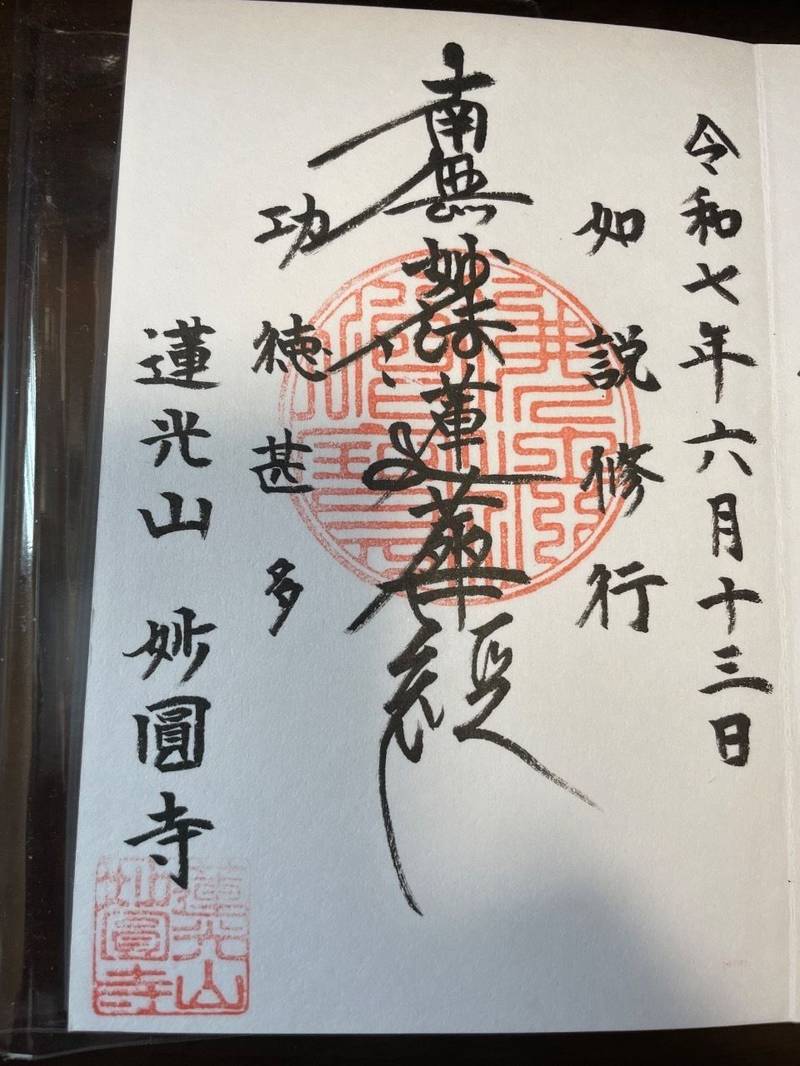 令和七年六月十三日
如説修行
南無妙法蓮華経
功徳甚多
蓮光山 妙圓寺
蓮光山
妙圓寺